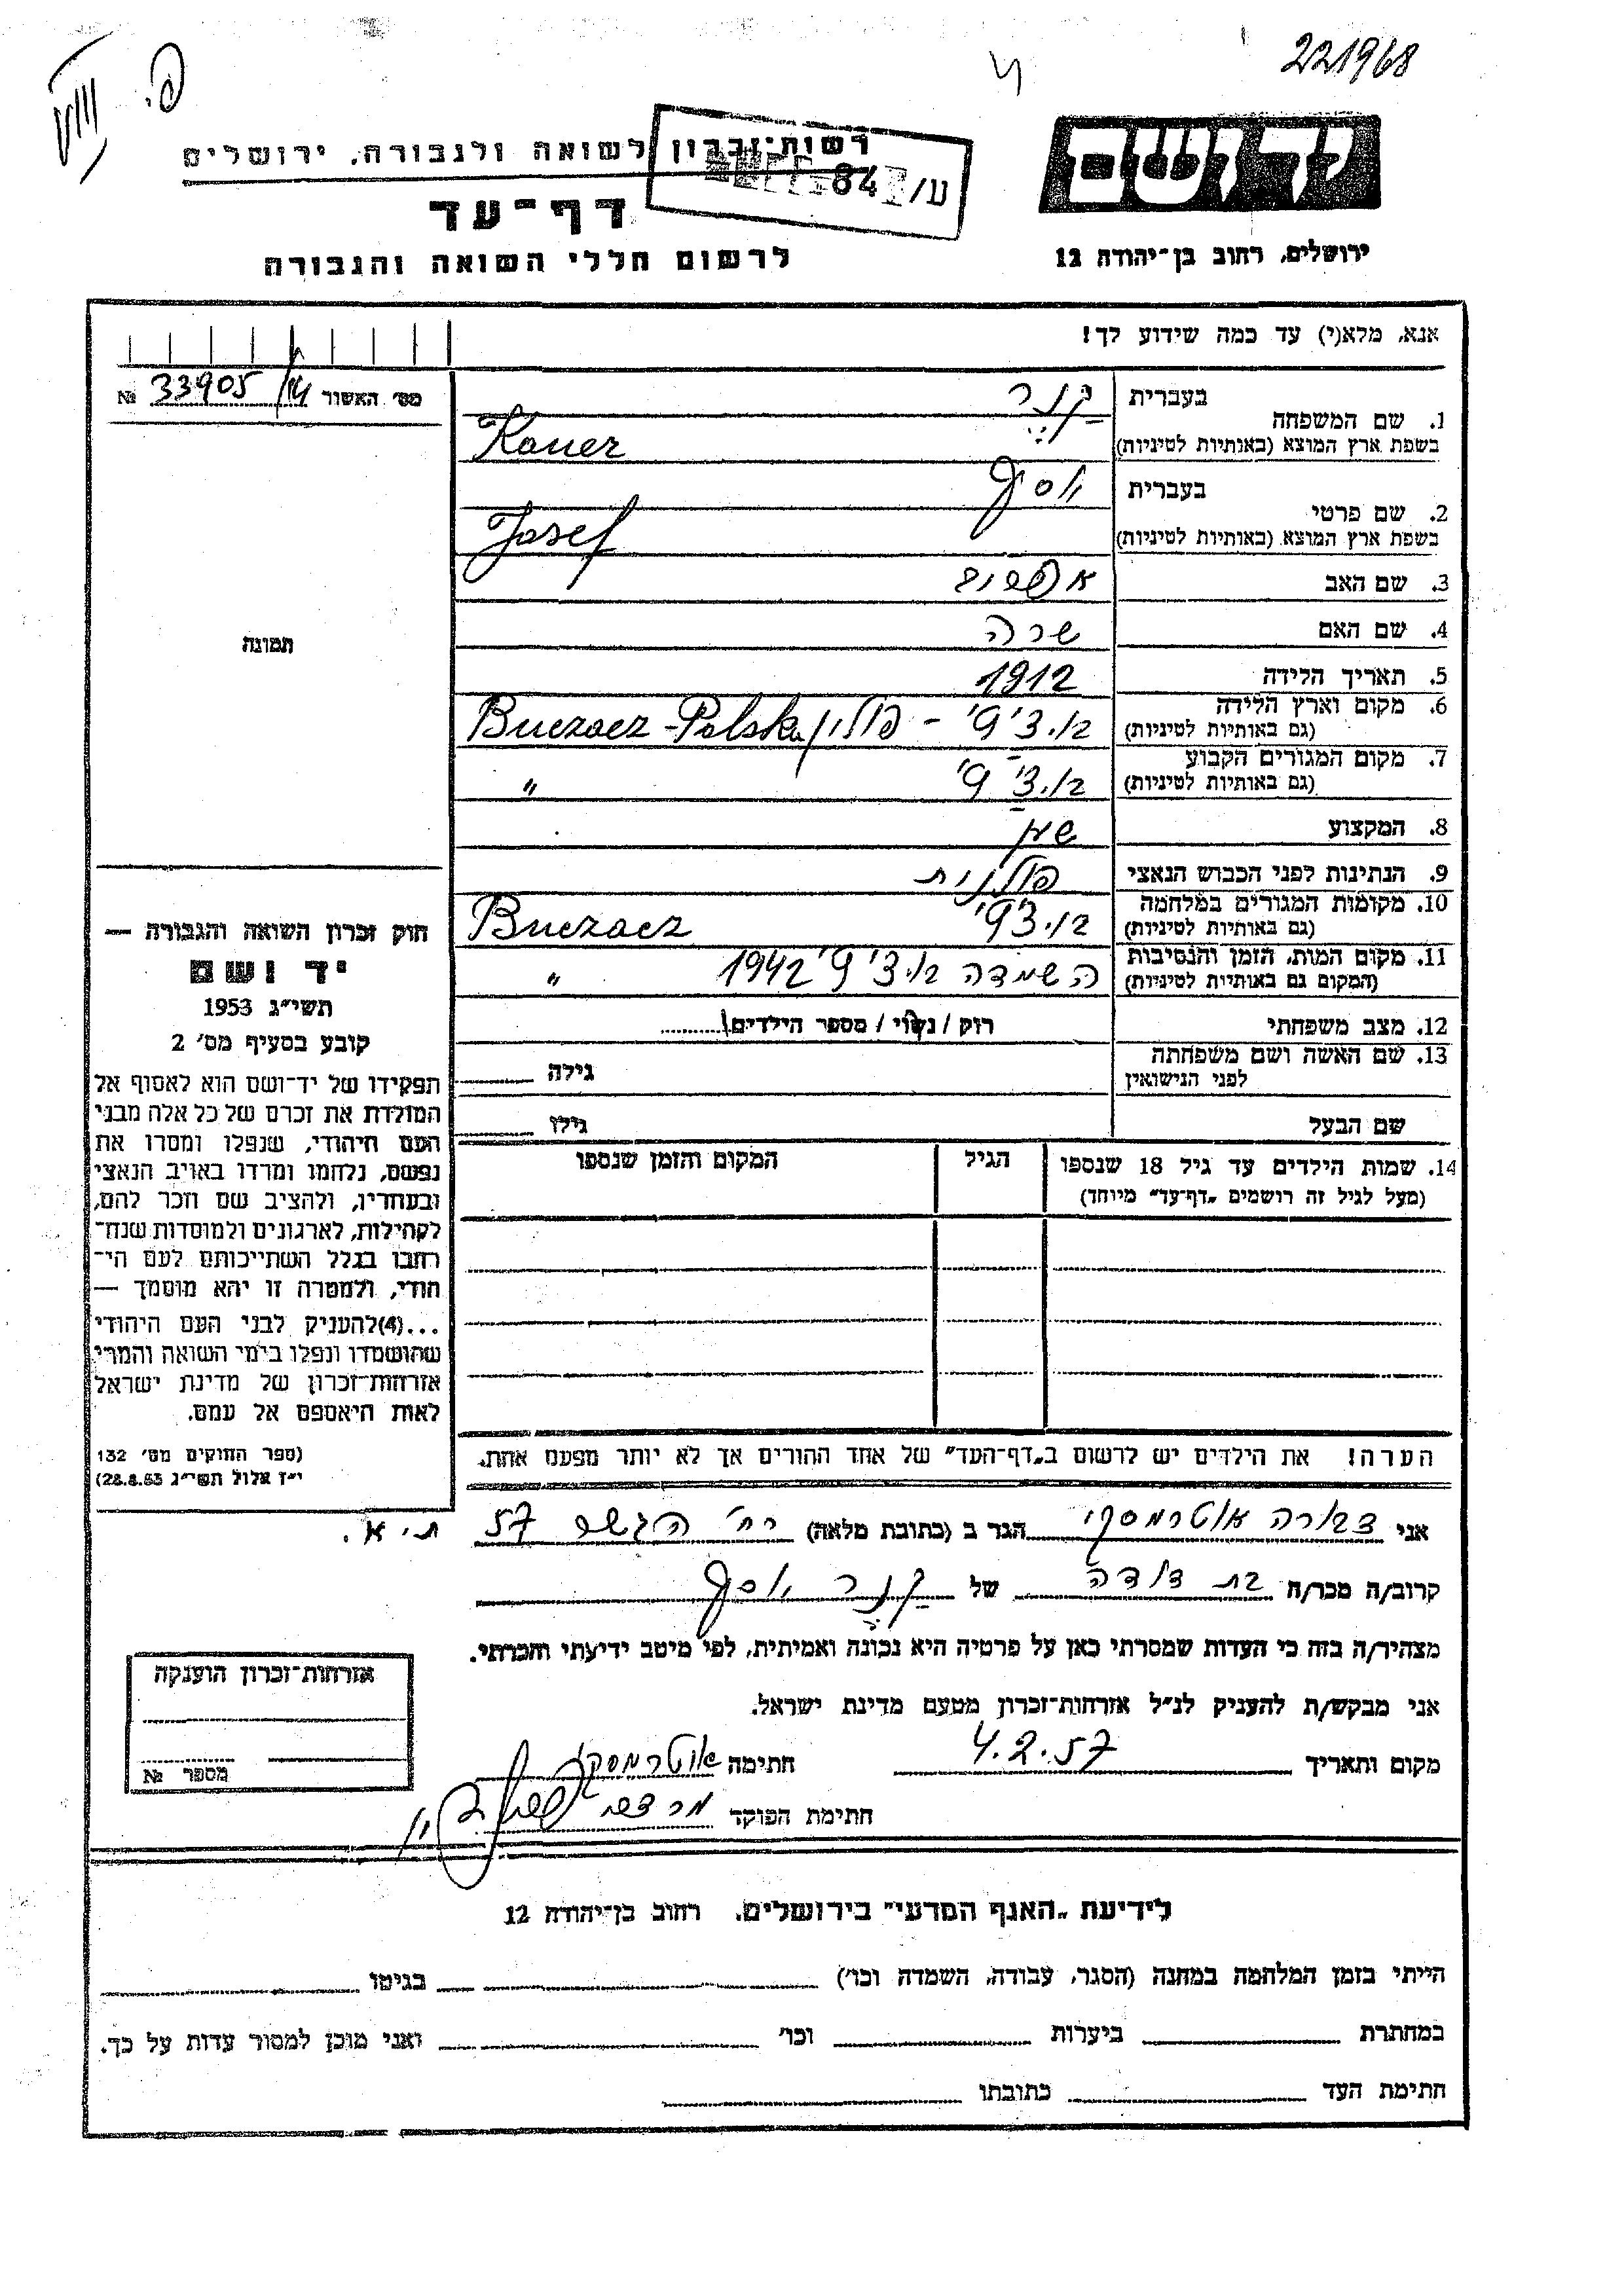 221968
יד ושם
רשות־זכרון לשואה ולגבורה, ירושלים
84 ע/
דף־עד
לרשום חללי השואה והגבורה
ירושלים, רחוב בן־יהודה 12
אנא, מלא(י) עד כמה שידוע לך!
מס׳ האשור 33905/14 №
1. שם המשפחה
בעברית קנר
בשפת ארץ המוצא (באותיות לטיניות) Kaner
2. שם פרטי
בעברית יוסף
בשפת ארץ המוצא (באותיות לטיניות) Josef
3. שם האב
4. שם האם שרה
5. תאריך הלידה 1912
6. מקום וארץ הלידה בוצ׳ץ׳ - פולין Buczacz-Polska
(גם באותיות לטיניות)
7. מקום המגורים הקבוע בוצ׳ץ׳ "
(גם באותיות לטיניות)
8. המקצוע
9. הנתינות לפני הכבוש הנאצי פולנית
10. מקומות המגורים במלחמה בוצ׳ץ׳ Buczacz
(גם באותיות לטיניות)
11. מקום המות, הזמן והנסיבות השמדה בוצ׳ץ׳ 1942 "
(המקום גם באותיות לטיניות)
12. מצב משפחתי רוק / נשוי / מספר הילדים
13. שם האשה ושם משפחתה
לפני הנישואין
גילה
שם הבעל גילו
14. שמות הילדים עד גיל 18 שנספו
(מעל לגיל זה רושמים „דף־עד״ מיוחד)
הגיל
המקום והזמן שנספו
הערה! את הילדים יש לרשום ב„דף־העד״ של אחד ההורים אך לא יותר מפעם אחת.
תמונה
חוק זכרון השואה והגבורה —
יד ושם
תשי״ג 1953
קובע בסעיף מס׳ 2
תפקידו של יד־ושם הוא לאסוף אל
המולדת את זכרם של כל אלה מבני
העם היהודי, שנפלו ומסרו את
נפשם, נלחמו ומרדו באויב הנאצי
ובעוזריו, ולהציב שם וזכר להם,
לקהילות, לארגונים ולמוסדות שנח־
רבו בגלל השתייכותם לעם הי־
הודי, ולמטרה זו יהא מוסמך —
...(4)להעניק לבני העם היהודי
שהושמדו ונפלו בימי השואה והמרי
אזרחות־זכרון של מדינת ישראל
לאות היאספם אל עמם.
(ספר החוקים מס׳ 132
י״ז אלול תשי״ג 28.8.53)
אני דבורה אוטרמסקי הגר ב (כתובת מלאה) רח׳ 57 ת״א.
קרוב/ה מכר/ה בת דודה של קנר יוסף
מצהיר/ה בזה כי העדות שמסרתי כאן על פרטיה היא נכונה ואמיתית, לפי מיטב ידיעתי והכרתי.
אני מבקש/ת להעניק לנ״ל אזרחות־זכרון מטעם מדינת ישראל.
מקום ותאריך 4.2.57 חתימה אוטרמסקי
חתימת הפוקד
אזרחות־זכרון הוענקה
מספר №
לידיעת „האגף המדעי״ בירושלים, רחוב בן־יהודה 12
הייתי בזמן המלחמה במחנה (הסגר, עבודה, השמדה וכו׳) בגיטו
במחתרת ביערות וכו׳ ואני מוכן למסור עדות על כך.
חתימת העד כתובתו